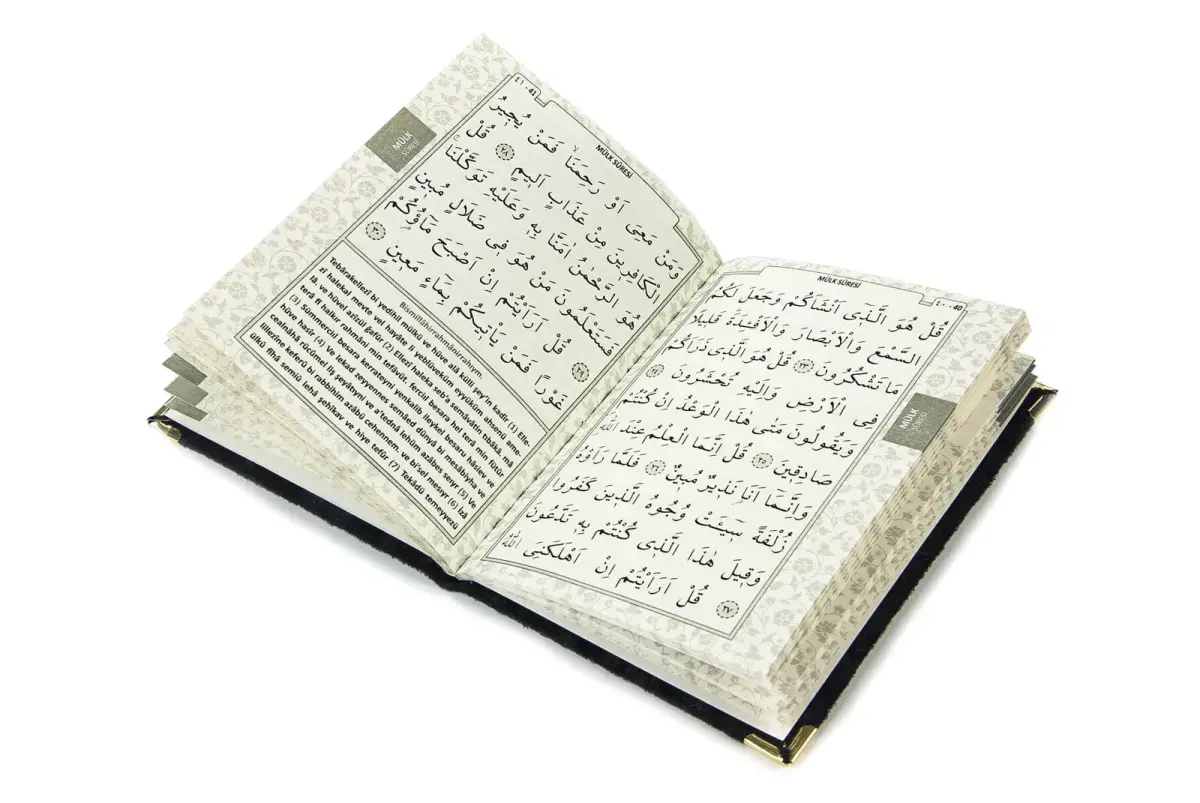 MÜLK SÛRESİ
٤٠ - 40
قُلْ هُوَ الَّذ۪ٓي اَنْشَاَكُمْ وَجَعَلَ لَكُمُ
السَّمْعَ وَالْاَبْصَارَ وَالْاَفْـِٔدَةَ قَل۪يلًا
مَا تَشْكُرُونَ ٢٣ قُلْ هُوَ الَّذ۪ي ذَرَاَكُمْ
فِي الْاَرْضِ وَاِلَيْهِ تُحْشَرُونَ ٢٤
وَيَقُولُونَ مَتٰى هٰذَا الْوَعْدُ اِنْ كُنْتُمْ
صَادِق۪ينَ ٢٥ قُلْ اِنَّمَا الْعِلْمُ عِنْدَ اللّٰهِ
وَاِنَّمَٓا اَنَا نَذ۪يرٌ مُب۪ينٌ ٢٦ فَلَمَّا رَاَوْهُ
زُلْفَةً س۪ٓيـَٔتْ وُجُوهُ الَّذ۪ينَ كَفَرُوا
وَق۪يلَ هٰذَا الَّذ۪ي كُنْتُمْ بِه۪ تَدَّعُونَ
٢٧ قُلْ اَرَاَيْتُمْ اِنْ اَهْلَكَنِيَ اللّٰهُ
MÜLK
SÛRESİ
MÜLK SÛRESİ
٤١ - 41
وَمَنْ مَعِيَ اَوْ رَحِمَنَا فَمَنْ يُج۪يرُ
الْكَافِر۪ينَ مِنْ عَذَابٍ اَل۪يمٍ ٢٨ قُلْ
هُوَ الرَّحْمٰنُ اٰمَنَّا بِه۪ وَعَلَيْهِ تَوَكَّلْنَا
فَسَتَعْلَمُونَ مَنْ هُوَ ف۪ي ضَلَالٍ مُب۪ينٍ
٢٩ قُلْ اَرَاَيْتُمْ اِنْ اَصْبَحَ مَٓاؤُ۬كُمْ
غَوْرًا فَمَنْ يَأْت۪يكُمْ بِمَٓاءٍ مَع۪ينٍ ٣٠
MÜLK
SÛRESİ
Bismillâhirrahmânirrahıym.
Tebârakellezî bi yedihil mülkü ve hüve alâ külli şey'in kadîr. (1) Elle-
zî halekal mevte vel hayâte li yeblüveküm eyyüküm ahsenü ame-
lâ. ve hüvel azîzül ğafûr (2) Ellezî haleka seb'a semâvâtin tıbâkâ. mâ
terâ fî halkır rahmâni min tefâvüt. ferciıl besara hel terâ min fütûr
(3) Sümmerciıl besara kerrateyni yenkalib ileykel besaru hâsiev ve
hüve hasîr (4) Ve lekad zeyyennes semâed dünyâ bi mesâbiyha ve
cealnâhâ rücûmel liş şeyâtıyni ve a'tednâ lehüm azâbes seıyr (5) Ve
lillezîne keferû bi rabbihim azâbü cehennem. ve bi'sel mesıyr (6) İzâ
ülkû fîhâ semiû lehâ şehîkav ve hiye tefûr (7) Tekâdü temeyyezü